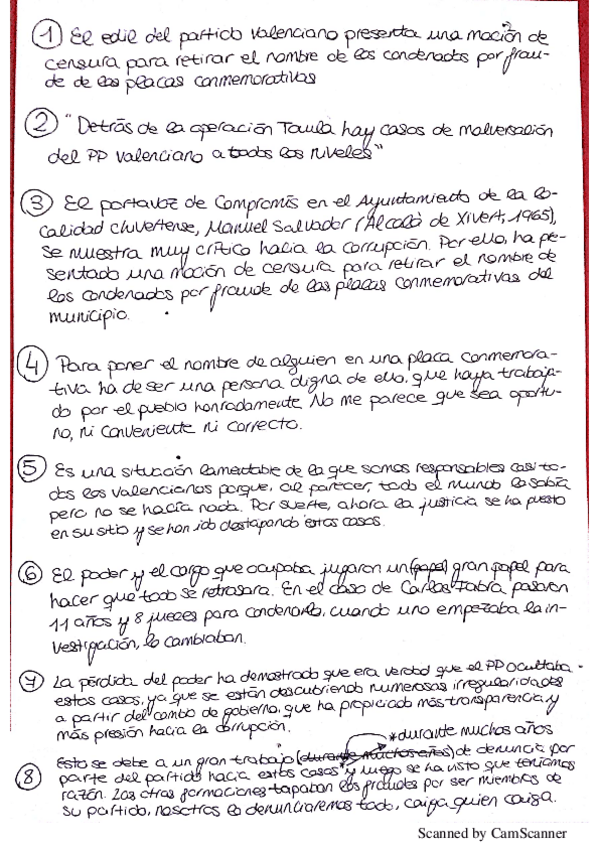 1 El edil del partido valenciano presenta una moción de
censura para retirar el nombre de los condenados por frau-
de de las placas conmemorativas
2 "Detrás de la operación Taula hay casos de malversación
del PP valenciano a todos los niveles"
3 El portavoz de Compromís en el Ayuntamiento de la lo-
calidad chivertense, Manuel Salvador (Alcalá de Xivert, 1965),
se muestra muy crítico hacia la corrupción. Por ello, ha pe-
sentado una moción de censura para retirar el nombre de
los condenados por fraude de las placas conmemorativas del
municipio.
4 Para poner el nombre de alguien en una placa conmemora-
tiva ha de ser una persona digna de ello, que haya trabaja-
do por el pueblo honradamente. No me parece que sea oportu-
no, ni conveniente ni correcto.
5 Es una situación lamentable de la que somos responsables casi to-
dos los valencianos porque, al parecer, todo el mundo lo sabía
pero no se hacía nada. Por suerte, ahora la justicia se ha puesto
en su sitio y se han ido destapando estos casos.
6 El poder y el cargo que ocupaba jugaron un (papel) gran papel para
hacer que todo se retrasara. En el caso de Carlos Fabra pasaron
11 años y 8 jueces para condenarlo, cuando uno empezaba la in-
vestigación, lo cambiaban.
7 La pérdida del poder ha demostrado que era verdad que el PP ocultaba
estos casos, ya que se están descubriendo numerosas irregularidades
a partir del cambio de gobierno, que ha propiciado más transparencia y
más presión hacia la corrupción.
*durante muchos años
8 Esto se debe a un gran trabajo (durante muchos años) de denuncia por
parte del partido hacia estos casos y luego se ha visto que teníamos
razón. Las otras formaciones tapaban los fraudes por ser miembros de
su partido, nosotros lo denunciaremos todo, caiga quien caiga.
Scanned by CamScanner